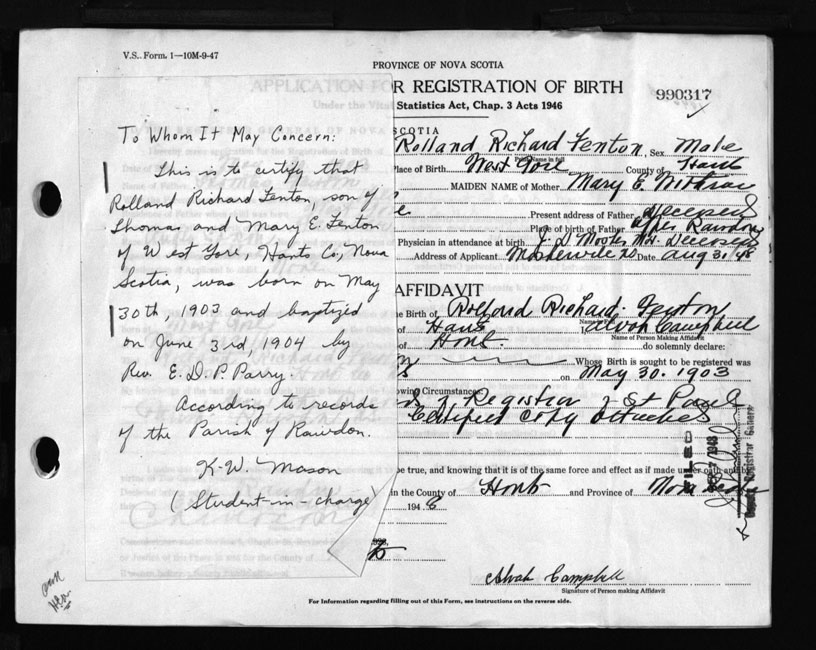 V.S. Form. 1—10M-9-47
PROVINCE OF NOVA SCOTIA
APPLICATION FOR REGISTRATION OF BIRTH
990317
Statistics Act, Chap. 3 Acts 1946
To Whom It May Concern:
This is to certify that
Rolland Richard Fenton, son of
Thomas and Mary E. Fenton
of West Gore, Hants Co, Nova
Scotia, was born on May
30th, 1903 and baptized
on June 3rd, 1904 by
Rev. E. D. P. Parry.
According to records
of the Parish of Rawdon.
K. W. Mason
(Student-in-charge)
SCOTIA
Rolland Richard Fenton, Sex Male
Place of Birth West Gore County of
MAIDEN NAME of Mother Mary E.
Present address of Father Deceased
Place of birth of Father Rawdon
Physician in attendance at birth J. D. Deceased
Address of Applicant Date Aug 31/48
AFFIDAVIT
Birth of Rolland Richard Fenton
of Hants I, Alvah Campbell
Name of Person Making Affidavit
of do solemnly declare:
Whose Birth is sought to be registered was
on May 30. 1903
Circumstances
Registrar St Paul
Certified Copy attached
be true, and knowing that it is of the same force and effect as if made under oath
in the County of Hants and Province of Nova Scotia
1948
FILED
1948
Deputy Registrar General
Alvah Campbell
Signature of Person making Affidavit
For Information regarding filling out of this Form, see instructions on the reverse side.